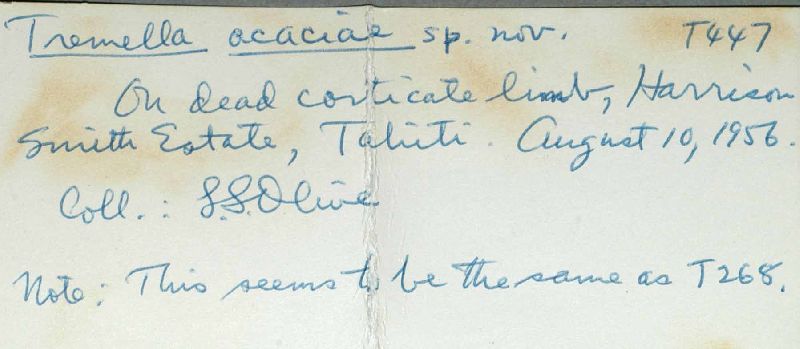 Tremella acaciae sp. nov. T447
On dead corticate limb, Harrison
Smith Estate, Tahiti. August 10, 1956.
Coll.: L.S. Olive
Note: This seems to be the same as T268.